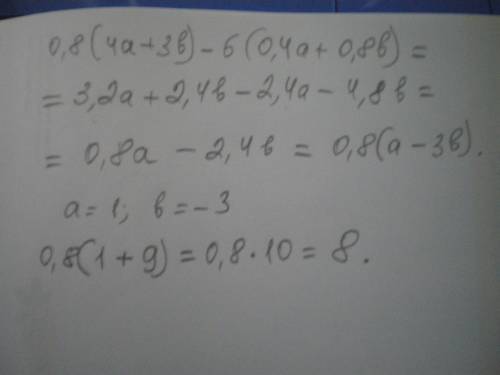 0,8(4a+3b)-6(0,4a+0,8b)=
=3,2a+2,4b-2,4a-4,8b=
=0,8a-2,4b=0,8(a-3b).
a=1; b=-3
0,8(1+9)=0,8·10=8.